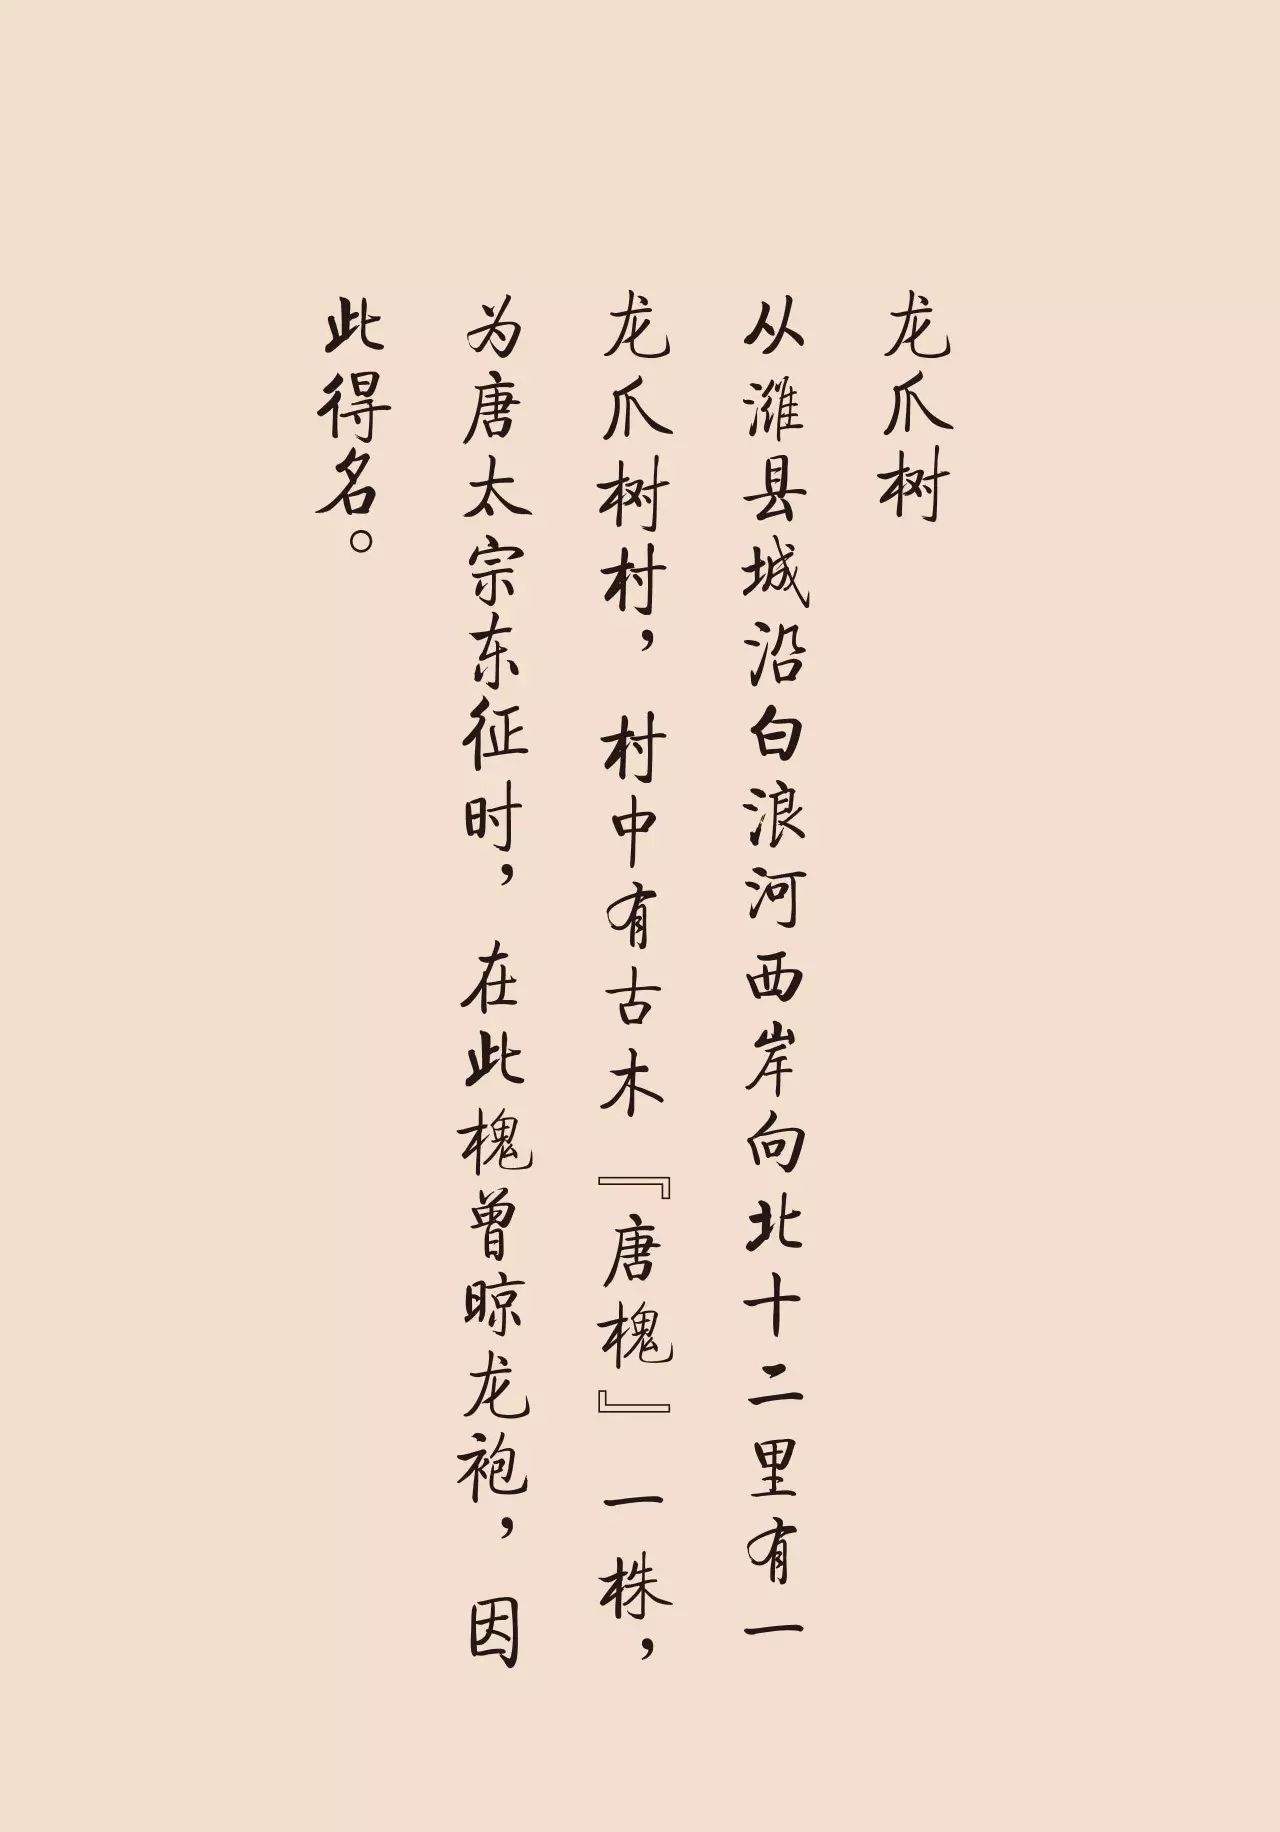 龙爪树
从潍县城沿白浪河西岸向北十二里有一
龙爪树村，村中有古木『唐槐』一株，
为唐太宗东征时，在此槐曾晾龙袍，因
此得名。